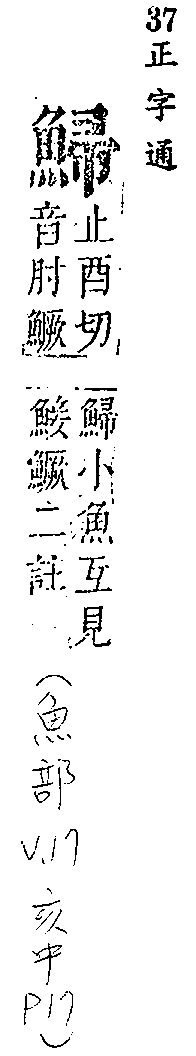 37正字通
鯞
止酉切
音肘鱖
鯞小魚互見
鮻鱖二註
(魚部
V.17
亥中
P17)